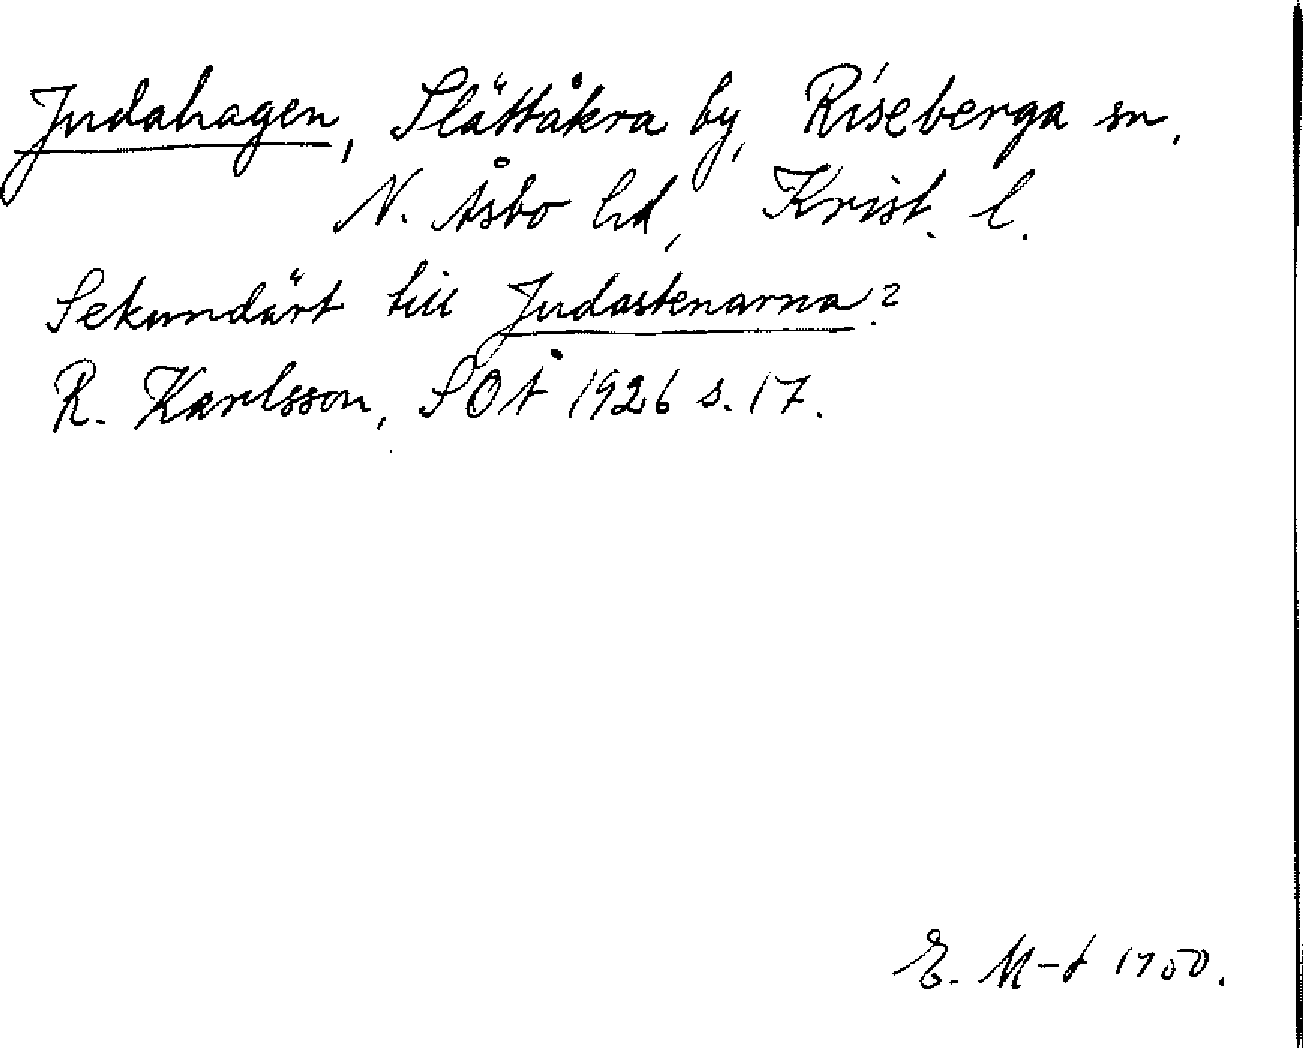 Judahagen, Slättåkra by, Riseberga sn.
N. Åsbo hd, Krist. l.
Sekundärt till Judastenarna?
R. Karlsson, SOÅ 1926 s. 17.
E. M-t 1950.